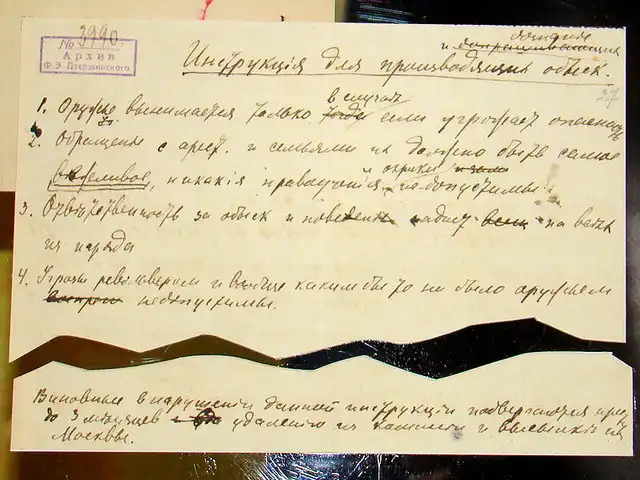 № 3990.
Архив
Ф. Э. Дзержинского.
и допрашивающих
Инструкция для производящих обыск.
27
в случае
1. Оружие вынимается только тогда если угрожает опасность
2. Обращение с арест. и семьями их должно быть самое
и окрики
вежливое, никакия нравоучения недопустимы.
3. Ответственность за обыск и поведение падает на всех
из наряда
4. Угрозы револьвером и вообще каким бы то ни было оружием
недопустимы.
Виновные в нарушении данной инструкции подвергаются аресту
до 3 месяцев удалению из комиссии и высылке из
Москвы.